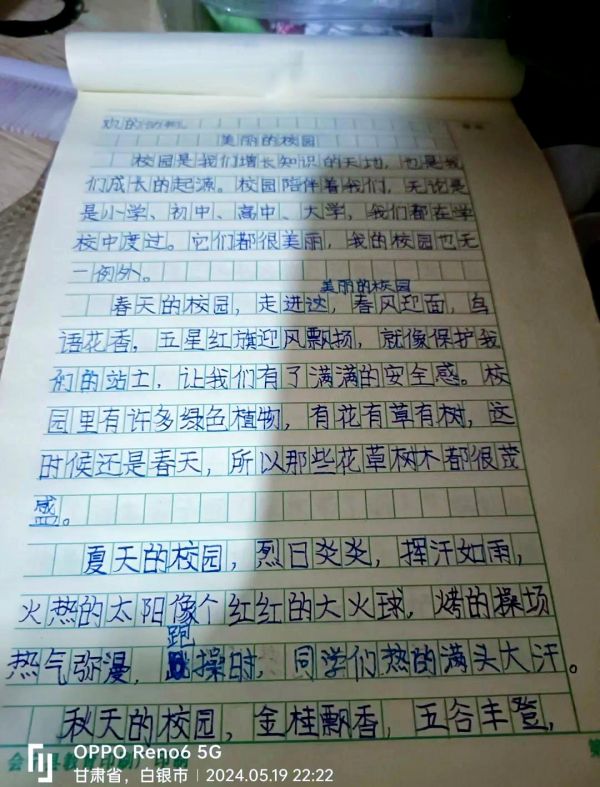 欢的
美丽的校园
校园是我们增长知识的天地,也是我
们成长的起源。校园陪伴着我们,无论是
是小学、初中、高中、大学,我们都在学
校中度过。它们都很美丽,我的校园也无
一例外。
美丽的校园
春天的校园,走进这,春风迎面,鸟
语花香。五星红旗迎风飘扬,就像保护我
们的站士,让我们有了满满的安全感。校
园里有许多绿色植物,有花有草有树,这
时候还是春天,所以那些花草树木都很茂
盛。
夏天的校园,烈日炎炎,挥汗如雨,
火热的太阳像个红红的大火球,烤的操场
跑
热气弥漫,操时,同学们热的满头大汗。
秋天的校园,金桂飘香,五谷丰登,
会 县教育印刷厂印制
第
OPPO Reno6 5G
甘肃省,白银市 | 2024.05.19 22:22